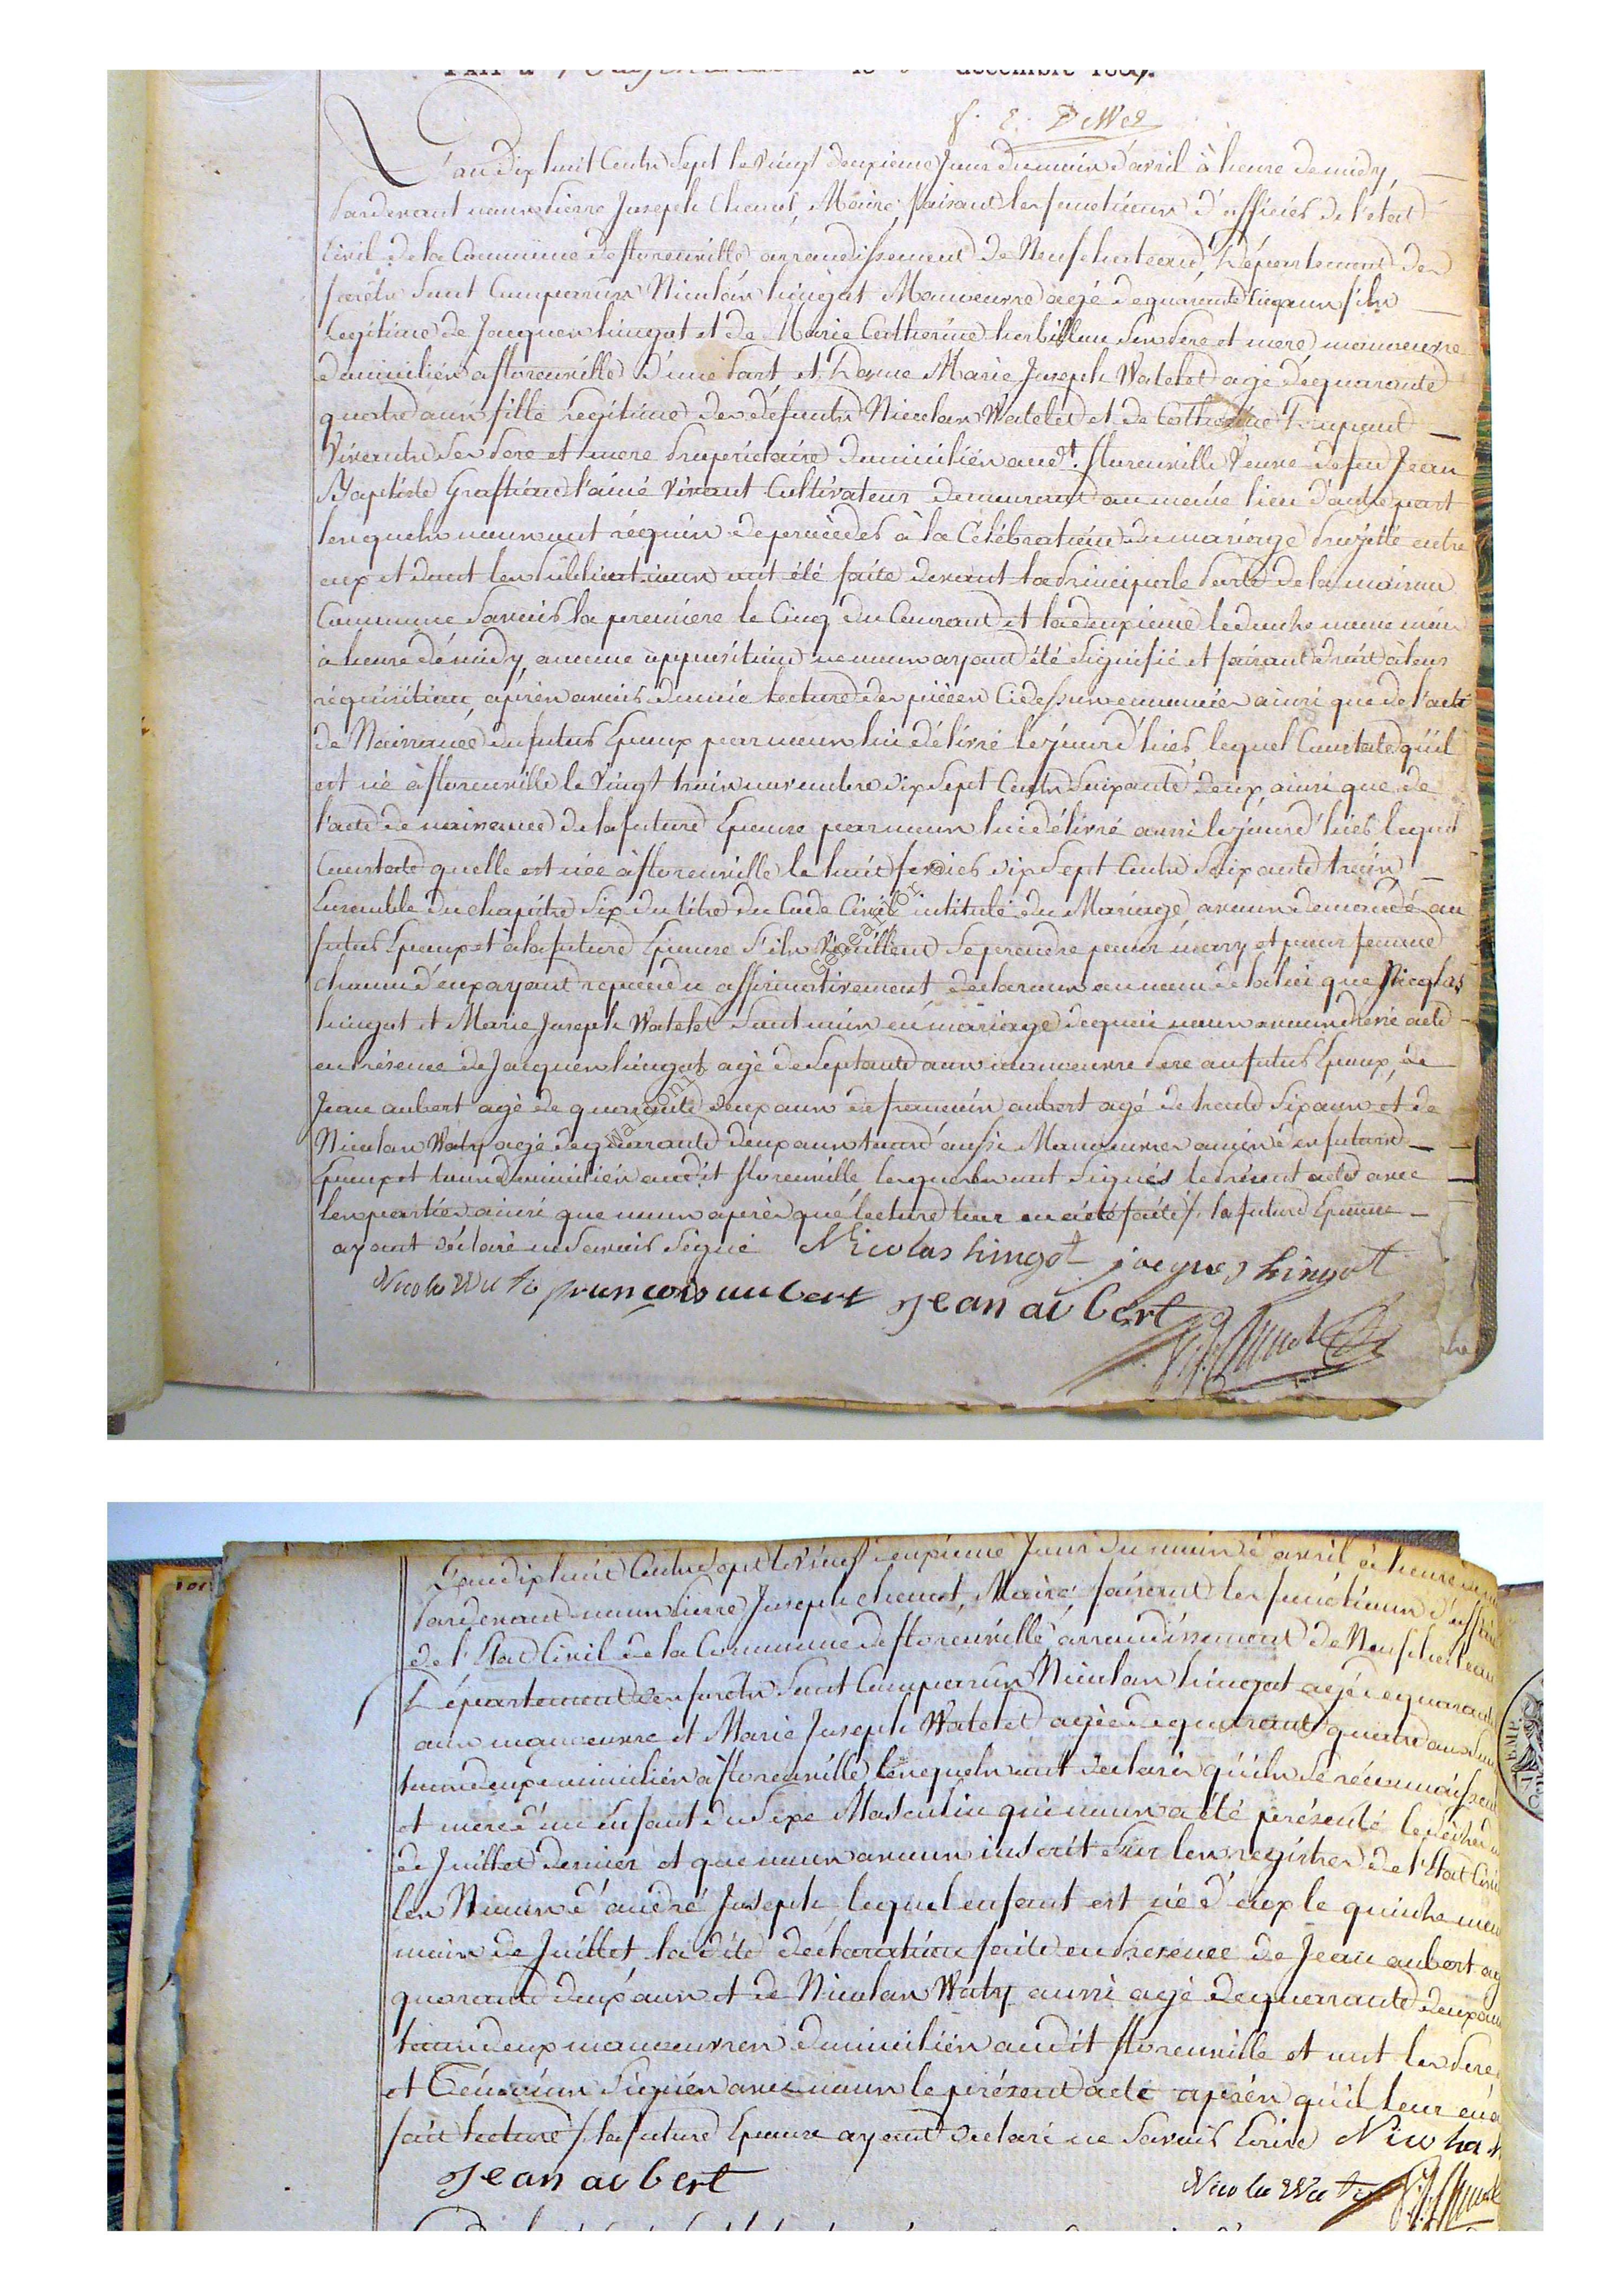 décembre 180
f. E. DeWez
L'an dix huit Cents Sept le vingt deuxieme Jour du mois d'avril à heure de midy
Pardevant nous Pierre Joseph Chenot, Maire, faisant les fonctions d'officier de l'état
Civil de la Commune de florenville arrondissement de Neufchateau, Département des
forêts sont Comparus Nicolas hingot Manoeuvre agé de quarante Cinq ans fils
Legitime de Jacques hingot et de Marie Catherine herbillon ses Pere et mere manoeuvre
domiciliés a florenville d'une Part et Dame Marie Joseph Watelet agé de quarante
quatre ans fille legitime des défunts Nicolas Watelet et de Catherine
Vivants ses Pere et mere Propriétaire domiciliés audt. florenville Veuve de feu Jean
Baptiste l'ainé Vivant Cultivateur demeurant au même lieu d'autre part
lesquels nous ont réquis de procèder à la Célébration du mariage Projétté entre
eux et dont les Publications ont été faite devant la Principale Porte de la maison
Commune Savoir la premiere le Cinq du Courant et la deuxieme le douhe meme mois
à heure de midy, aucune opposition ne nous ayant été Signifié et faisant droit à leur
réquisition, après avoir donné lecture des pièces Cidessus enoncées ainsi que de l'acte
de Naissance du futur Epoux par nous lui délivré lejourd'hier lequel Constate qu'il
est né à florenville le Vingt trois novembre dix Sept Cents Soixante Deux, ainsi que de
l'acte de naissance de la future Epouse par nous lui délivré aussi lejourd'hier lequel
Constate quelle est née à florenville le huit fevrier dix Sept Cents Soixante trois
Ensemble du chapitre Six du titre du Code Civil intitulé du Mariage avons demandé au
futur Epoux et à la future Epouse s'ils Veuillent Se prendre pour mary et pour femme
chacun d'eux ayant repondu affirmativement declarons au nom de la loi que Nicolas
hingot et Marie Joseph Watelet Sont unis en mariage dequoi nous avons dressé acte
en Présence de Jacques hingot agé de Septante ans manoeuvre Pere au futur Epoux, de
Jean aubert agé de quarante deux ans de francois aubert agé de trente Six ans et de
Nicolas Waty agé de quarante deux ans tous aussi Manoeuvres amis des futurs
Epoux et tous domiciliés audit florenville, lesquels ont Signés le Présent acte avec
les parties ainsi que nous après que lecture leur en a été faite /. la future Epouse
ayant déclaré ne Savoir Signé Nicolas hingot jacques hingot
Nicola Wati francois aubert Jean aubert
P.J. Chenot
L'an dix huit Cents Sept le vingt deuxieme Jour du mois d'avril à heure
Pardevant nous Pierre Joseph chenot, Maire, faisant les fonctions d'offi
de l'Etat Civil de la Commune de florenville, arrondissement de Neufchateau
Département des forêts Sont Comparus Nicolas hingot agé de quarante
ans manoeuvre et Marie Joseph Watelet agée de quarante quatre ans
tous deux domiciliés à florenville, lesquels ont declarés qu'ils se réconnaissent
et mere d'un enfant du Sexe Masculin qui nous a été présenté le
de Juillet dernier et que nous avons inscrit Sur les registres de l'Etat Civil
les Noms d'andré Joseph, lequel enfant est né d'eux le quinhe
mois de Juillet, la dite declaration faite en Presence de Jean aubert
quarante deux ans et de Nicolas Waty aussi agé de quarante deux ans
tous deux manoeuvres domiciliés audit florenville et ont les Pere
et Témoins Signés avec nous le présent acte après qu'il leur en a
fait lecture /. la future Epouse ayant declaré ne Savoir Ecrire Nicolas
Jean aubert Nicola Wati P.J. Chenot